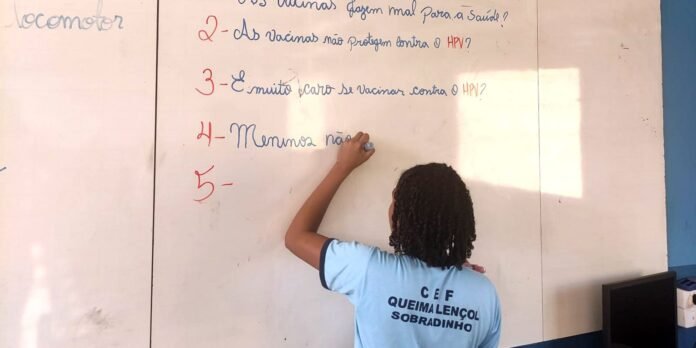 locomotor
vacinas fazem mal para a saúde?
2 - As vacinas não protegem contra o HPV?
3 - É muito caro se vacinar contra o HPV?
4 - Meninos não
5 -
C E F
QUEIMA LENÇOL
SOBRADINHO